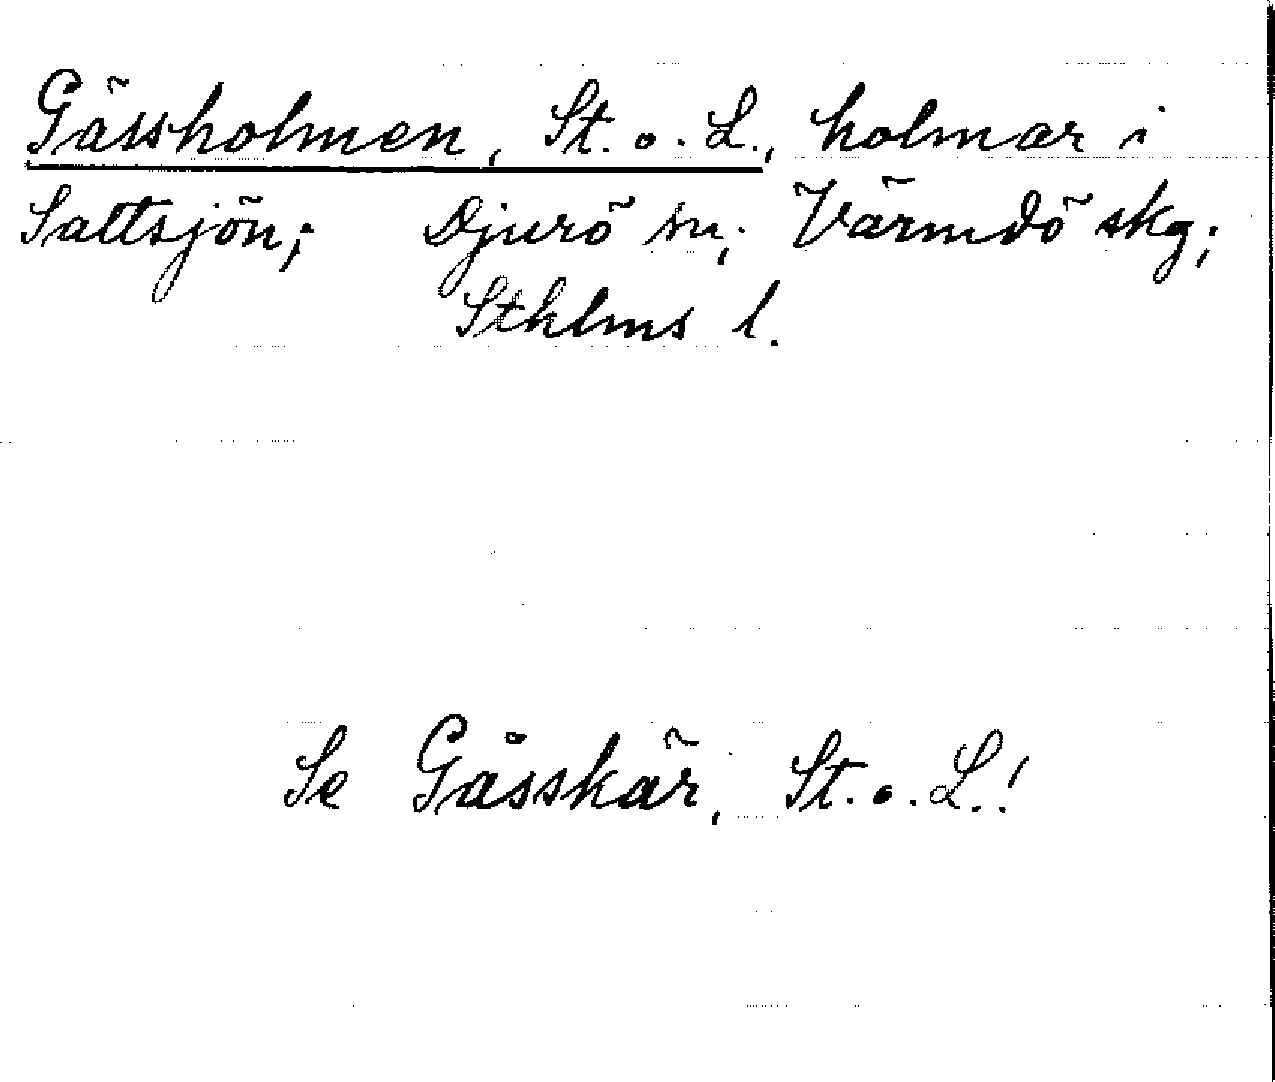 Gässholmen, St. o. L., holmar i
Saltsjön; Djurö sn; Värmdö skg;
Sthlms l.
Se Gåsskär, St. o. L.!